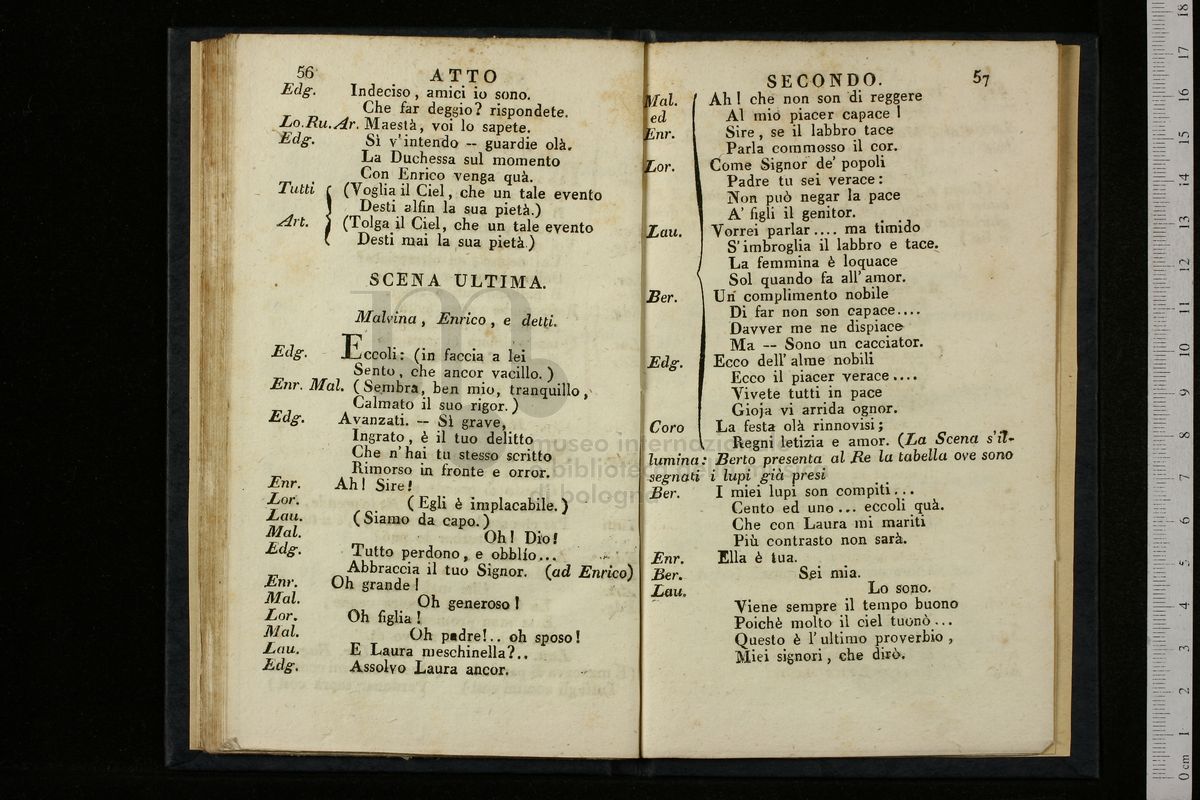 56 ATTO
Edg. Indeciso, amici io sono.
Che far deggio? rispondete.
Lo.Ru.Ar. Maestà, voi lo sapete.
Edg. Sì v'intendo -- guardie olà.
La Duchessa sul momento
Con Enrico venga quà.
Tutti (Voglia il Ciel, che un tale evento
Desti alfin la sua pietà.)
Art. (Tolga il Ciel, che un tale evento
Desti mai la sua pietà.)
SCENA ULTIMA.
Malvina, Enrico, e detti.
Edg. Eccoli: (in faccia a lei
Sento, che ancor vacillo.)
Enr. Mal. (Sembra, ben mio, tranquillo,
Calmato il suo rigor.)
Edg. Avanzati. -- Sì grave,
Ingrato, è il tuo delitto
Che n'hai tu stesso scritto
Rimorso in fronte e orror.
Enr. Ah! Sire!
Lor. (Egli è implacabile.)
Lau. (Siamo da capo.)
Mal. Oh! Dio!
Edg. Tutto perdono, e obblío...
Abbraccia il tuo Signor. (ad Enrico)
Enr. Oh grande!
Mal. Oh generoso!
Lor. Oh figlia!
Mal. Oh padre!.. oh sposo!
Lau. E Laura meschinella?..
Edg. Assolvo Laura ancor.
SECONDO. 57
Mal. Ah! che non son di reggere
ed Al mio piacer capace!
Enr. Sire, se il labbro tace
Parla commosso il cor.
Lor. Come Signor de' popoli
Padre tu sei verace:
Non può negar la pace
A' figli il genitor.
Lau. Vorrei parlar.... ma timido
S'imbroglia il labbro e tace.
La femmina è loquace
Sol quando fa all'amor.
Ber. Un complimento nobile
Di far non son capace....
Davver me ne dispiace
Ma -- Sono un cacciator.
Edg. Ecco dell'alme nobili
Ecco il piacer verace....
Vivete tutti in pace
Gioja vi arrida ognor.
Coro La festa olà rinnovisi;
Regni letizia e amor. (La Scena s'il-
lumina: Berto presenta al Re la tabella ove sono
segnati i lupi già presi
Ber. I miei lupi son compiti...
Cento ed uno... eccoli quà.
Che con Laura mi mariti
Più contrasto non sarà.
Enr. Ella è tua.
Ber. Sei mia.
Lau. Lo sono.
Viene sempre il tempo buono
Poichè molto il ciel tuonò...
Questo è l'ultimo proverbio,
Miei signori, che dirò.
museo internazionale
biblioteca della musica
di bologna
0 cm 1 2 3 4 5 6 7 8 9 10 11 12 13 14 15 16 17 18